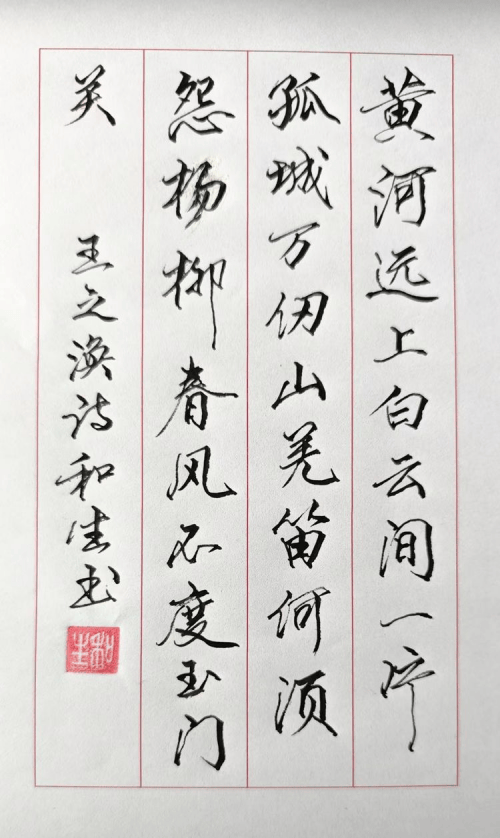 黄河远上白云间一片
孤城万仞山羌笛何须
怨杨柳春风不度玉门
关
王之涣诗和书